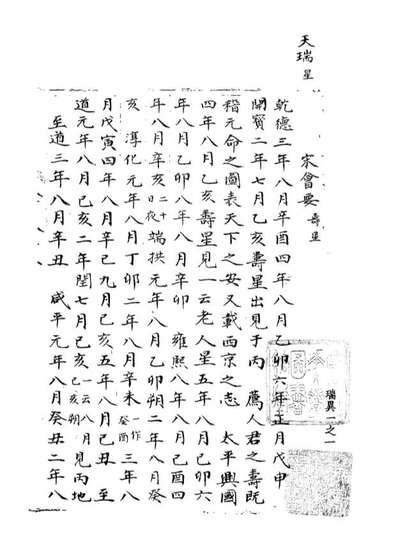 天瑞 星
宋會要 壽星
瑞異一之一
乾德三年八月辛酉四年八月乙卯六年正月戊申
開寶二年七月乙亥壽星出見于丙 薦人君之壽既
稽元命之圖表天下之安又載西京之志 太平興國
四年八月乙亥壽星見一云老人星五年八月己卯六
年八月乙卯八年八月辛卯 雍熙八年八月己酉四
年八月辛亥二十日夜端拱元年八月乙卯朔二年八月癸
亥 淳化元年八月丁卯二年八月辛未一作癸酉三年八
月戊寅四年八月辛巳九月己亥五年八月己丑 至
道元年八月己亥二年閏七月己亥一云八月己亥朔見丙地
至道三年八月辛丑 咸平元年八月癸丑二年八